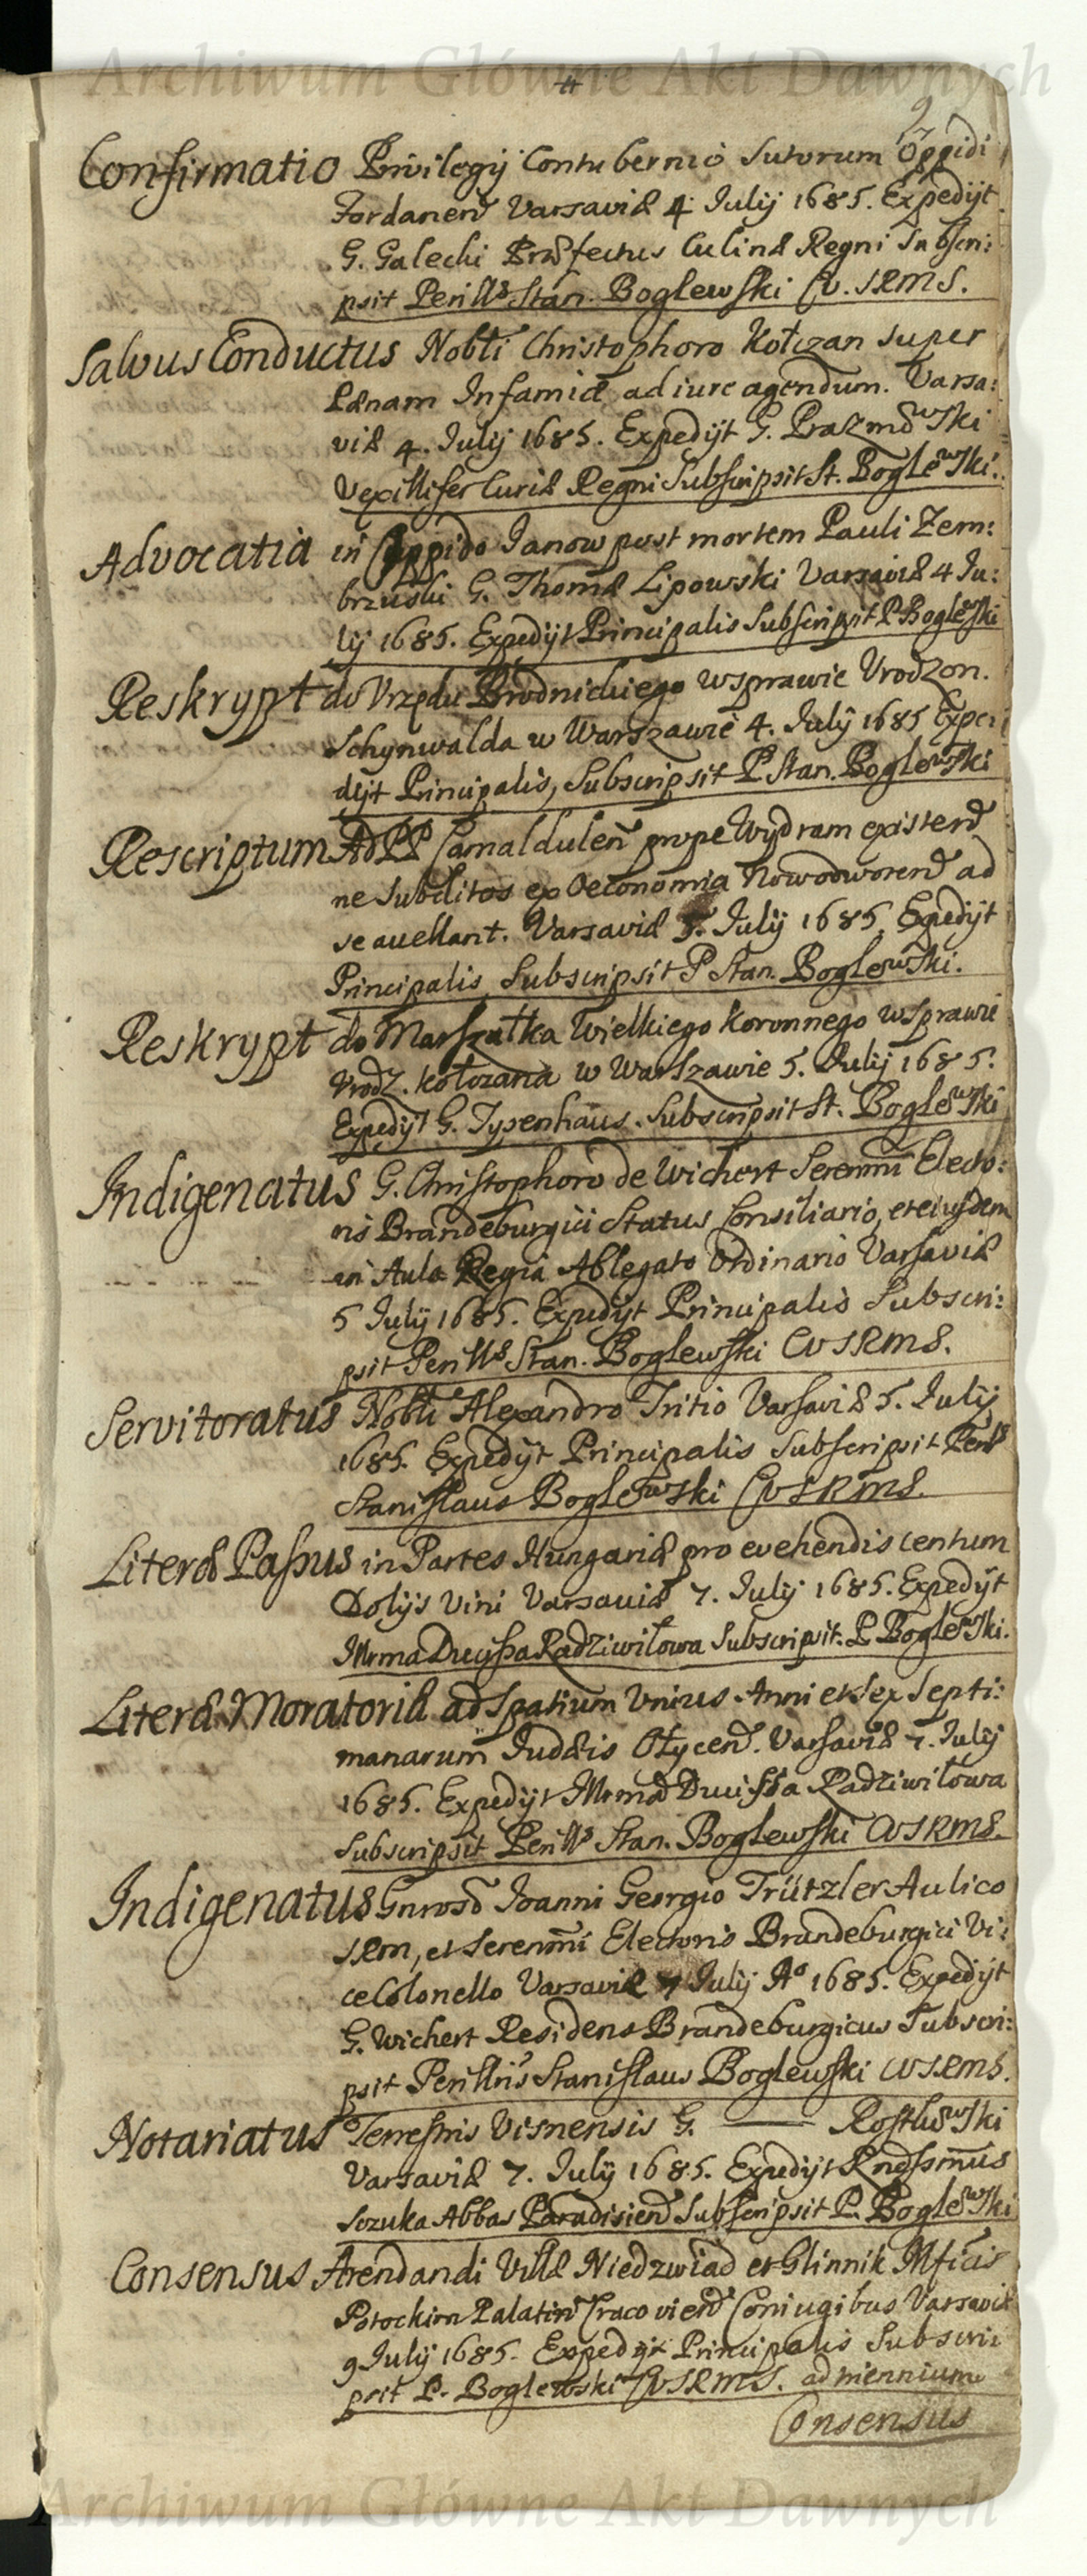 Archiwum Główne Akt Dawnych
9
Confirmatio Privilegij Contubernio Sutorum Oppidi
Fordanen Varsaviæ 4 Julij 1685. Expedijt
G. Galecki Præfectus Culinæ Regni Subscri:
psit Perills Stan. Boglewski CV. SRMS.
Salvus Conductus Nobli Christophoro Kołczan super
Pænam Infamiæ ad iure agendum. Varsa:
viæ 4. Julij 1685. Expedijt G. Prazmowski
Vexillifer Curiæ Regni Subscripsit St. Boglewski.
Advocatia in Oppido Janow post mortem Pauli Zem:
brzuski G. Thomæ Lipowski Varsaviæ 4 Ju:
lij 1685. Expedijt Principalis Subscripsit P Boglewski
Reskrypt do Vrzędu Brodnickiego wsprawie Vrodzon.
Schynwalda w Warszawie 4. July 1685 Expe:
dijt Principalis, Subscripsit P Stan. Boglewski
Rescriptum Ad PP Camaldulen prope Wydram existen
ne Subditos ex Oeconomia Nowodworen ad
se avellant. Varsaviæ 5. Julij 1685. Expedijt
Principalis Subscripsit P Stan. Boglewski.
Reskrypt do Marszałka Wielkiego Koronnego wsprawie
Vrodz. Kołczana w Warszawie 5. Julij 1685.
Expedijt G. Tysenhaus. Subscripsit St. Boglewski
Indigenatus G. Christophoro de Wichert Serenmi Electo:
ris Brandeburgici Status Consiliario, et eiusdem
in Aula Regia Ablegato Ordinario Varsaviæ
5 Julij 1685. Expedijt Principalis Subscri:
psit Perills Stan. Boglewski CVSRMS.
Servitoratus Nobli Alexandro Tritio Varsaviæ 5. Julij
1685. Expedijt Principalis Subscripsit Perils
Stanislaus Boglewski CVSRMS.
Literæ Passus in Partes Hungariæ pro evehendis centum
Dolijs Vini Varsaviæ 7. Julij 1685. Expedijt
Illrma Ducissa Radziwiłowa Subscripsit. P Boglewski.
Literæ Moratoriæ ad Spatium Unius Anni et sex Septi:
manarum Judæis Ołycen. Varsaviæ 7. Julij
1685. Expedijt Illrma Ducissa Radziwiłowa
Subscripsit Perills Stan. Boglewski CVSRMS.
Indigenatus Gnroso Joanni Georgio Trützler Aulico
SRM, et Serenmi Electoris Brandeburgici Vi:
ce Colonello Varsaviæ 7 Julij Ao 1685. Expedijt
G. Wichert Residens Brandeburgicus Subscri:
psit Perillris Stanislaus Boglewski CVSRMS.
Notariatus Terrestris Visnensis G. ——— Rostkowski
Varsaviæ 7. Julij 1685. Expedijt Rndssmus
Szczuka Abbas Paradisien Subscripsit P. Boglewski
Consensus Arendandi Villæ Niedzwiad et Glinnik Mficis
Potockim Palatin Cracovien Coniugibus Varsaviæ
9 Julij 1685. Expedijt Principalis Subscri:
psit P. Boglewski CVSRMS. ad triennium
Consensus
Archiwum Główne Akt Dawnych